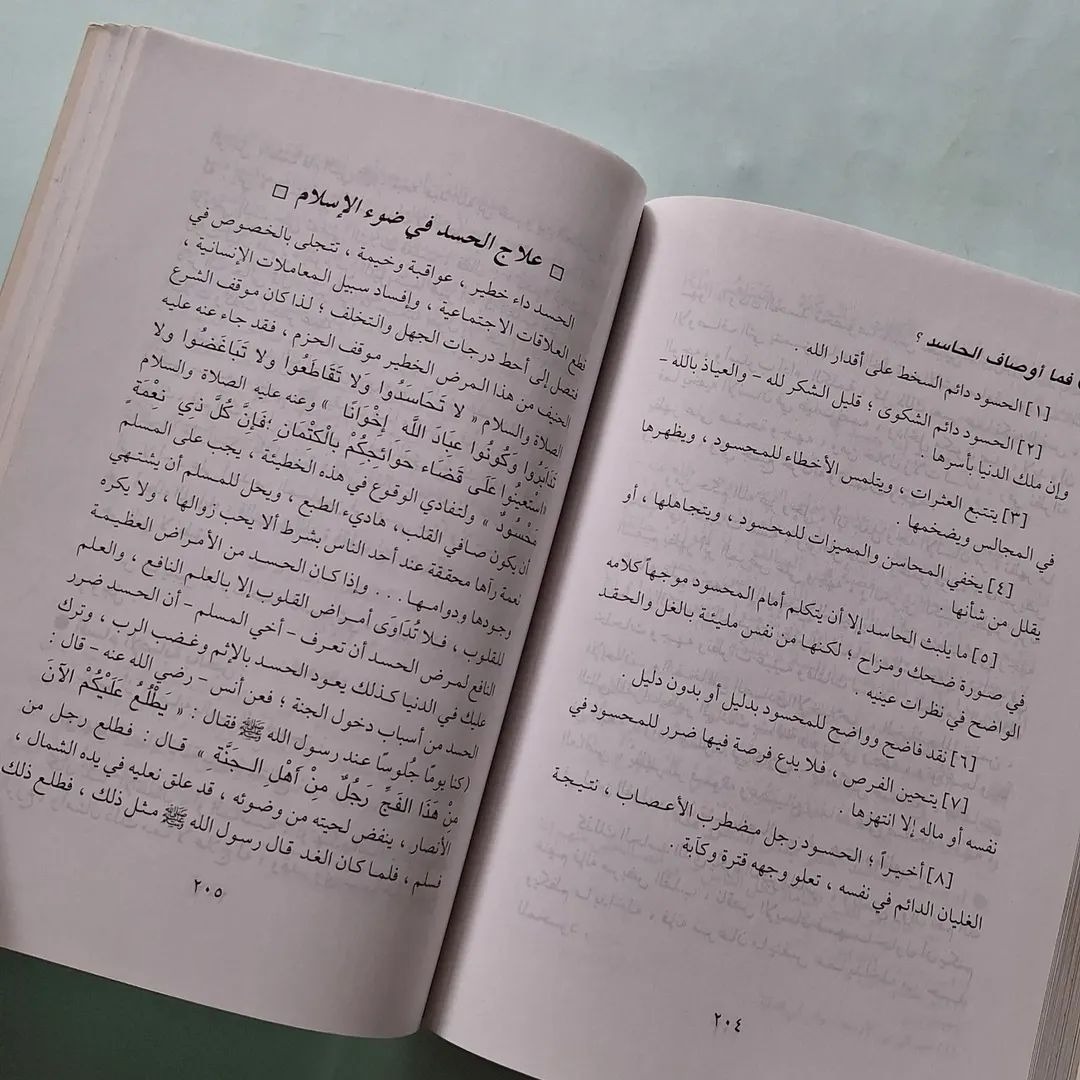 فما أوصاف الحاسد ؟
[١] الحسود دائم السخط على أقدار الله .
[٢] الحسود دائم الشكوى ؛ قليل الشكر لله - والعياذ بالله -
وإن ملك الدنيا بأسرها .
[٣] يتتبع العثرات ، ويتلمس الأخطاء للمحسود ، ويظهرها
في المجالس ويضخمها .
[٤] يخفي المحاسن والمميزات للمحسود ، ويتجاهلها ، أو
يقلل من شأنها .
[٥] ما يلبث الحاسد إلا أن يتكلم أمام المحسود موجهاً كلامه
في صورة ضحك ومزاح ؛ لكنها من نفس مليئة بالغل والحقد
الواضح في نظرات عينيه .
[٦] نقد فاضح وواضح للمحسود بدليل أو بدون دليل .
[٧] يتحين الفرص ، فلا يدع فرصة فيها ضرر للمحسود في
نفسه أو ماله إلا انتهزها .
[٨] أخيراً ؛ الحسود رجل مضطرب الأعصاب ، نتيجة
الغليان الدائم في نفسه ، تعلو وجهه قترة وكآبة .
٢٠٤
□ علاج الحسد في ضوء الإسلام □
الحسد داء خطير ، عواقبة وخيمة ، تتجلى بالخصوص في
قطع العلاقات الاجتماعية ، وإفساد سبيل المعاملات الإنسانية ،
فتصل إلى أحط درجات الجهل والتخلف ؛ لذا كان موقف الشرع
الحنيف من هذا المرض الخطير موقف الحزم ، فقد جاء عنه عليه
الصلاة والسلام « لا تَحَاسَدُوا وَلا تَقَاطَعُوا ولا تَبَاغَضُوا ولا
تَدَابَرُوا وَكُونُوا عِبَادَ اللَّه إِخْوَانًا » وعنه عليه الصلاة والسلام
«اسْتَعِينُوا عَلَى قَضَاء حَوَائِجِكُمْ بِالْكِتْمَانِ ؛فَإِنَّ كُلَّ ذِي نِعْمَةٍ
مَحْسُودٌ » ولتفادي الوقوع في هذه الخطيئة ، يجب على المسلم
أن يكون صافي القلب، هاديء الطبع ، ويحل للمسلم أن يشتهي
نعمة رآها محققة عند أحد الناس بشرط ألا يحب زوالها ، ولا يكره
وجودها ودوامها . . . وإذا كان الحسد من الأمراض العظيمة
للقلوب ، فلا تُدَاوَى أمراض القلوب إلا بالعلم النافع ، والعلم
النافع لمرض الحسد أن تعرف - أخي المسلم - أن الحسد ضرر
عليك في الدنيا كذلك يعود الحسد بالإثم وغضب الرب ، وترك
الحسد من أسباب دخول الجنة ؛ فعن أنس - رضي الله عنه - قال :
(كنا يومًا جُلوسًا عند رسول الله ﷺ فقال : « يَطْلُعُ عَلَيْكُمُ الآنَ
مِنْ هَذَا الفَجِّ رَجُلٌ مِنْ أَهْلِ الجَنَّة » قال : فطلع رجل من
الأنصار ، ينفض لحيته من وضوئه ، قد علق نعليه في يده الشمال ،
فسلم ، فلما كان الغد قال رسول الله ﷺ مثل ذلك ، فطلع ذلك
٢٠٥